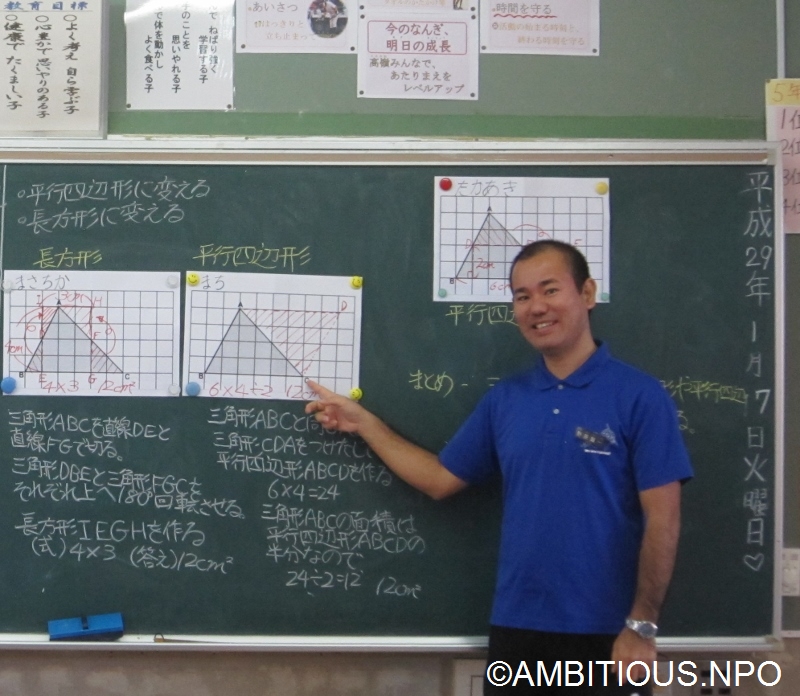 教育目標
○よく考え 自ら学ぶ子
○心豊かで思いやりのある子
○健康で たくましい子
ねばり強く
学習する子
のことを
思いやれる子
で体を動かし
よく食べる子
あいさつ
はっきりと
立ち止まって
今のなんぎ、
明日の成長
高嶺みんなで、
あたりまえを
レベルアップ
時間を守る
5年
1位
2位
3位
4位
平成29年1月17日火曜日♡
○平行四辺形に変える
○長方形に変える
長方形
平行四辺形
まさろか
3cm
4cm
I
A
H
D
F
B
E
G
C
4×3 12cm²
まろ
A
D
B
6×4÷2 12cm²
たかあき
A
D
E
F
B
2cm
6cm
平行四
三角形ABCを直線DEと
直線FGで切る。
三角形DBEと三角形FGCを
それぞれ上へ180°回転させる。
長方形IEGHを作る
(式)4×3 (答え)12cm²
三角形ABCと同
三角形CDAをつけたし
平行四辺形ABCDを作る
6×4=24
三角形ABCの面積は
平行四辺形ABCDの
半分なので、
24÷2=12 12cm²
まとめ
平行四辺
る。
©AMBITIOUS.NPO